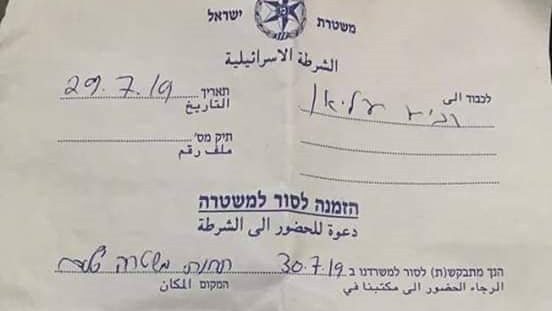 משטרת ישראל
الشرطة الاسرائيلية
לכבוד الى
תאריך 29.7.19
التاريخ
תיק מס'
ملف رقم
הזמנה לסור למשטרה
دعوة للحضور الى الشرطة
הנך מתבקש(ת) לסור למשרדנו ב 30.7.19 תחנת משטרה
الرجاء الحضور الى مكتبنا في المكان המקום